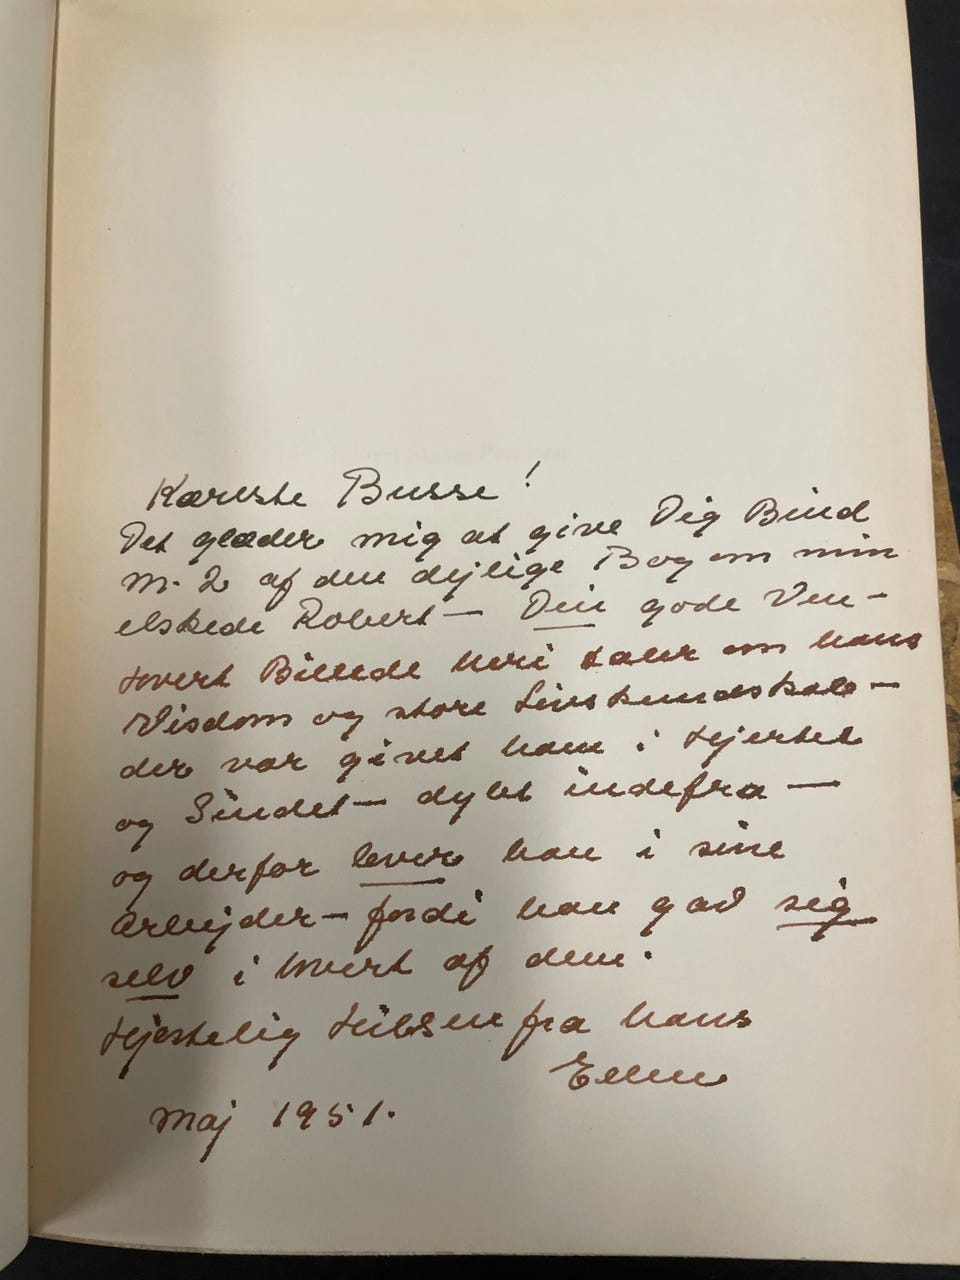 Kæreste Busse!
Det glæder mig at give Dig Bind
nr. 2 af den dejlige Bog om min
elskede Robert — Din gode Ven —
Hvert Billede heri taler om hans
Visdom og store Livskundskab —
der var givet ham i Hjertet
og Sindet — dybt indefra —
og derfor lever han i sine
Arbejder — fordi han gav sig
selv i hvert af dem.
Hjertelig Hilsen fra hans
Ellen
Maj 1951.